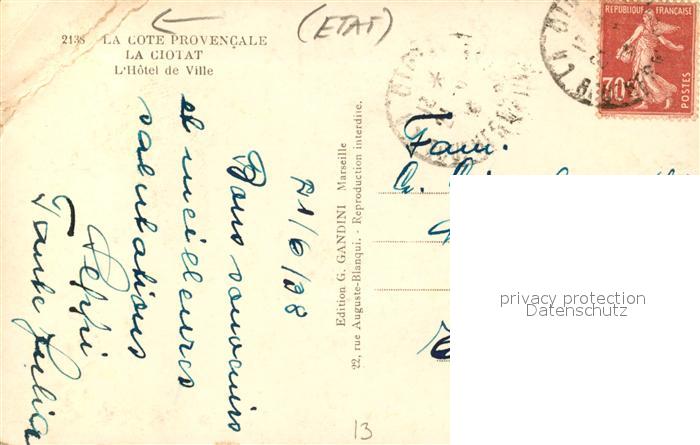 2138 LA COTE PROVENÇALE
LA CIOTAT
L'Hôtel de Ville
(ETAT)
RÉPUBLIQUE FRANÇAISE
30
POSTES
Fam.
Edition G. GANDINI Marseille
22, rue Auguste-Blanqui. - Reproduction interdite.
21/6/38
Bons souvenirs
et meilleures
salutations
Peppi
Tante Julia
13
privacy protection
Datenschutz